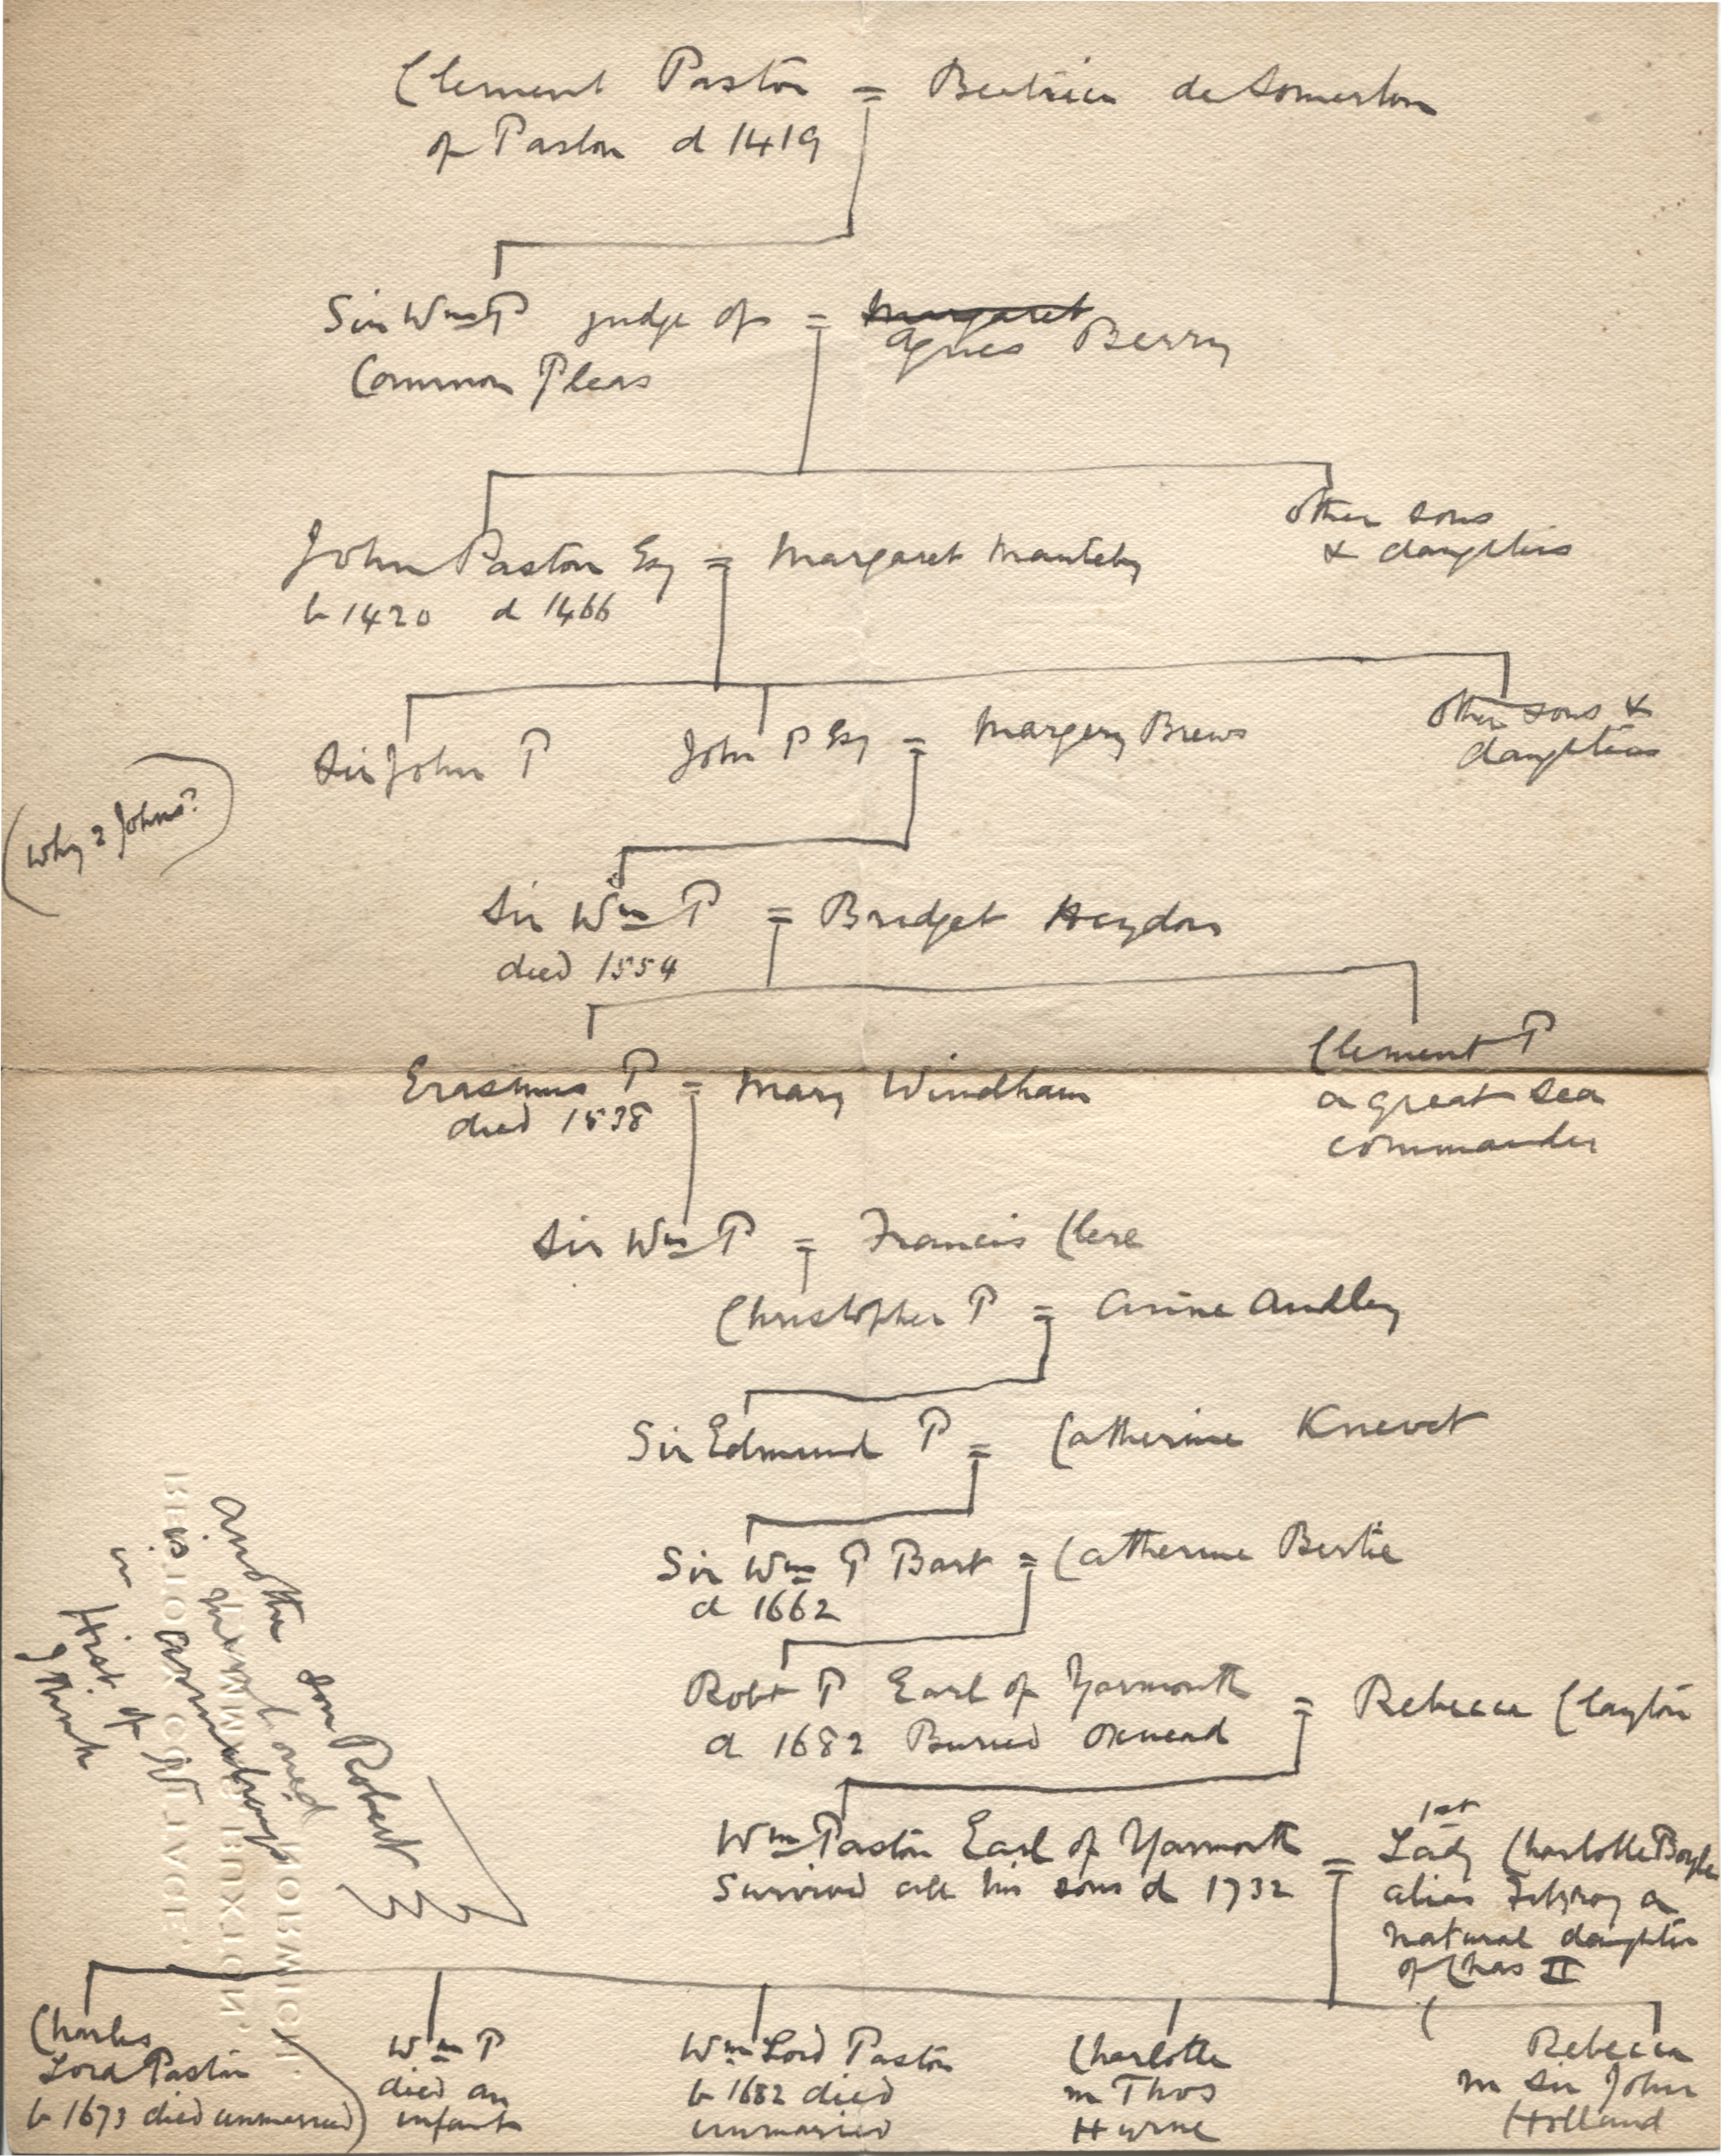 Clement Paston = Beatrice de Somerton
of Paston d 1419
Sir Wm P judge of = Margaret Agnes Berry
Common Pleas
other sons
& daughters
John Paston Esq = Margaret Mauteby
b 1420 d 1466
other sons &
daughters
Sir John P John P Esq = Margery Brews
(Why 2 Johns?)
Sir Wm P = Bridget Heydon
died 1554
Erasmus P = Mary Windham
died 1538
Clement P
a great sea
commander
Sir Wm P = Francis Clere
Christopher P = Anne Audley
Sir Edmund P = Catherine Knevet
Sir Wm P Bart = Catherine Bertie
d 1662
Robt P Earl of Yarmouth = Rebecca Clayton
d 1682 Buried Oxnead
Wm Paston Earl of Yarmouth =
Survived all his sons d 1732
1st
Lady Charlotte Boyle
alias Fitzroy a
natural daughter
of Chas II
another son Robert
mentioned
in Hist of N
I think
BUXTON
NORWICH.
Charles
Lord Paston
b 1673 died unmarried)
Wm P
died an
infant
Wm Lord Paston
b 1682 died
unmarried
Charlotte
m Thos
Hurne
Rebecca
m Sir John
Holland